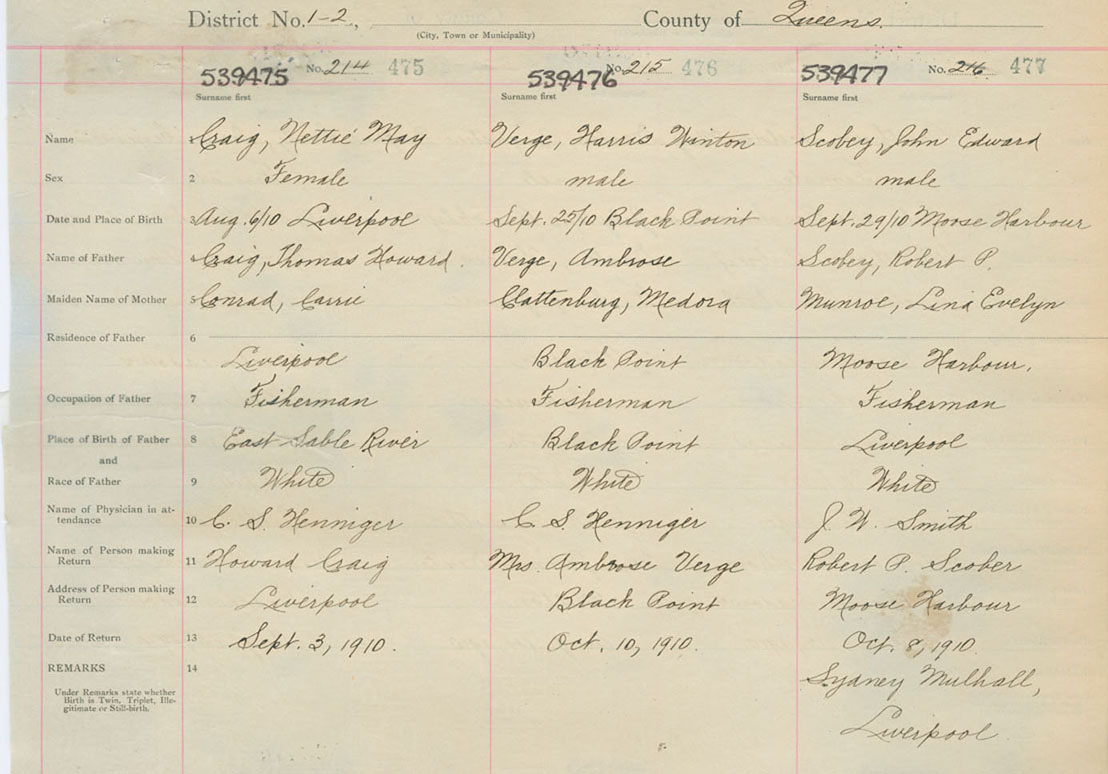 District No. 1-2, County of Queens.
(City, Town or Municipality)
539475 No. 214 475 539476 No. 215 476 539477 No. 216 477
Surname first Surname first Surname first
Name 1 Craig, Nettie May Verge, Harris Winton Scobey, John Edward
Sex 2 Female male male
Date and Place of Birth 3 Aug. 6/10 Liverpool Sept. 25/10 Black Point Sept. 29/10 Moose Harbour
Name of Father 4 Craig, Thomas Howard. Verge, Ambrose Scobey, Robert P.
Maiden Name of Mother 5 Conrad, Carrie Clattenburg, Medora Munroe, Lina Evelyn
Residence of Father 6
Liverpool Black Point Moose Harbour.
Occupation of Father 7 Fisherman Fisherman Fisherman
Place of Birth of Father 8 East Sable River Black Point Liverpool
and
Race of Father 9 White White White
Name of Physician in at-
tendance 10 C. S. Henniger C S. Henniger J. W. Smith
Name of Person making
Return 11 Howard Craig Mrs. Ambrose Verge Robert P. Scober
Address of Person making
Return 12 Liverpool Black Point Moose Harbour
Date of Return 13 Sept. 3, 1910. Oct. 10, 1910. Oct. 8, 1910.
REMARKS 14 Sydney Mulhall,
Under Remarks state whether
Birth is Twin, Triplet, Ille-
gitimate or Still-birth.
Liverpool